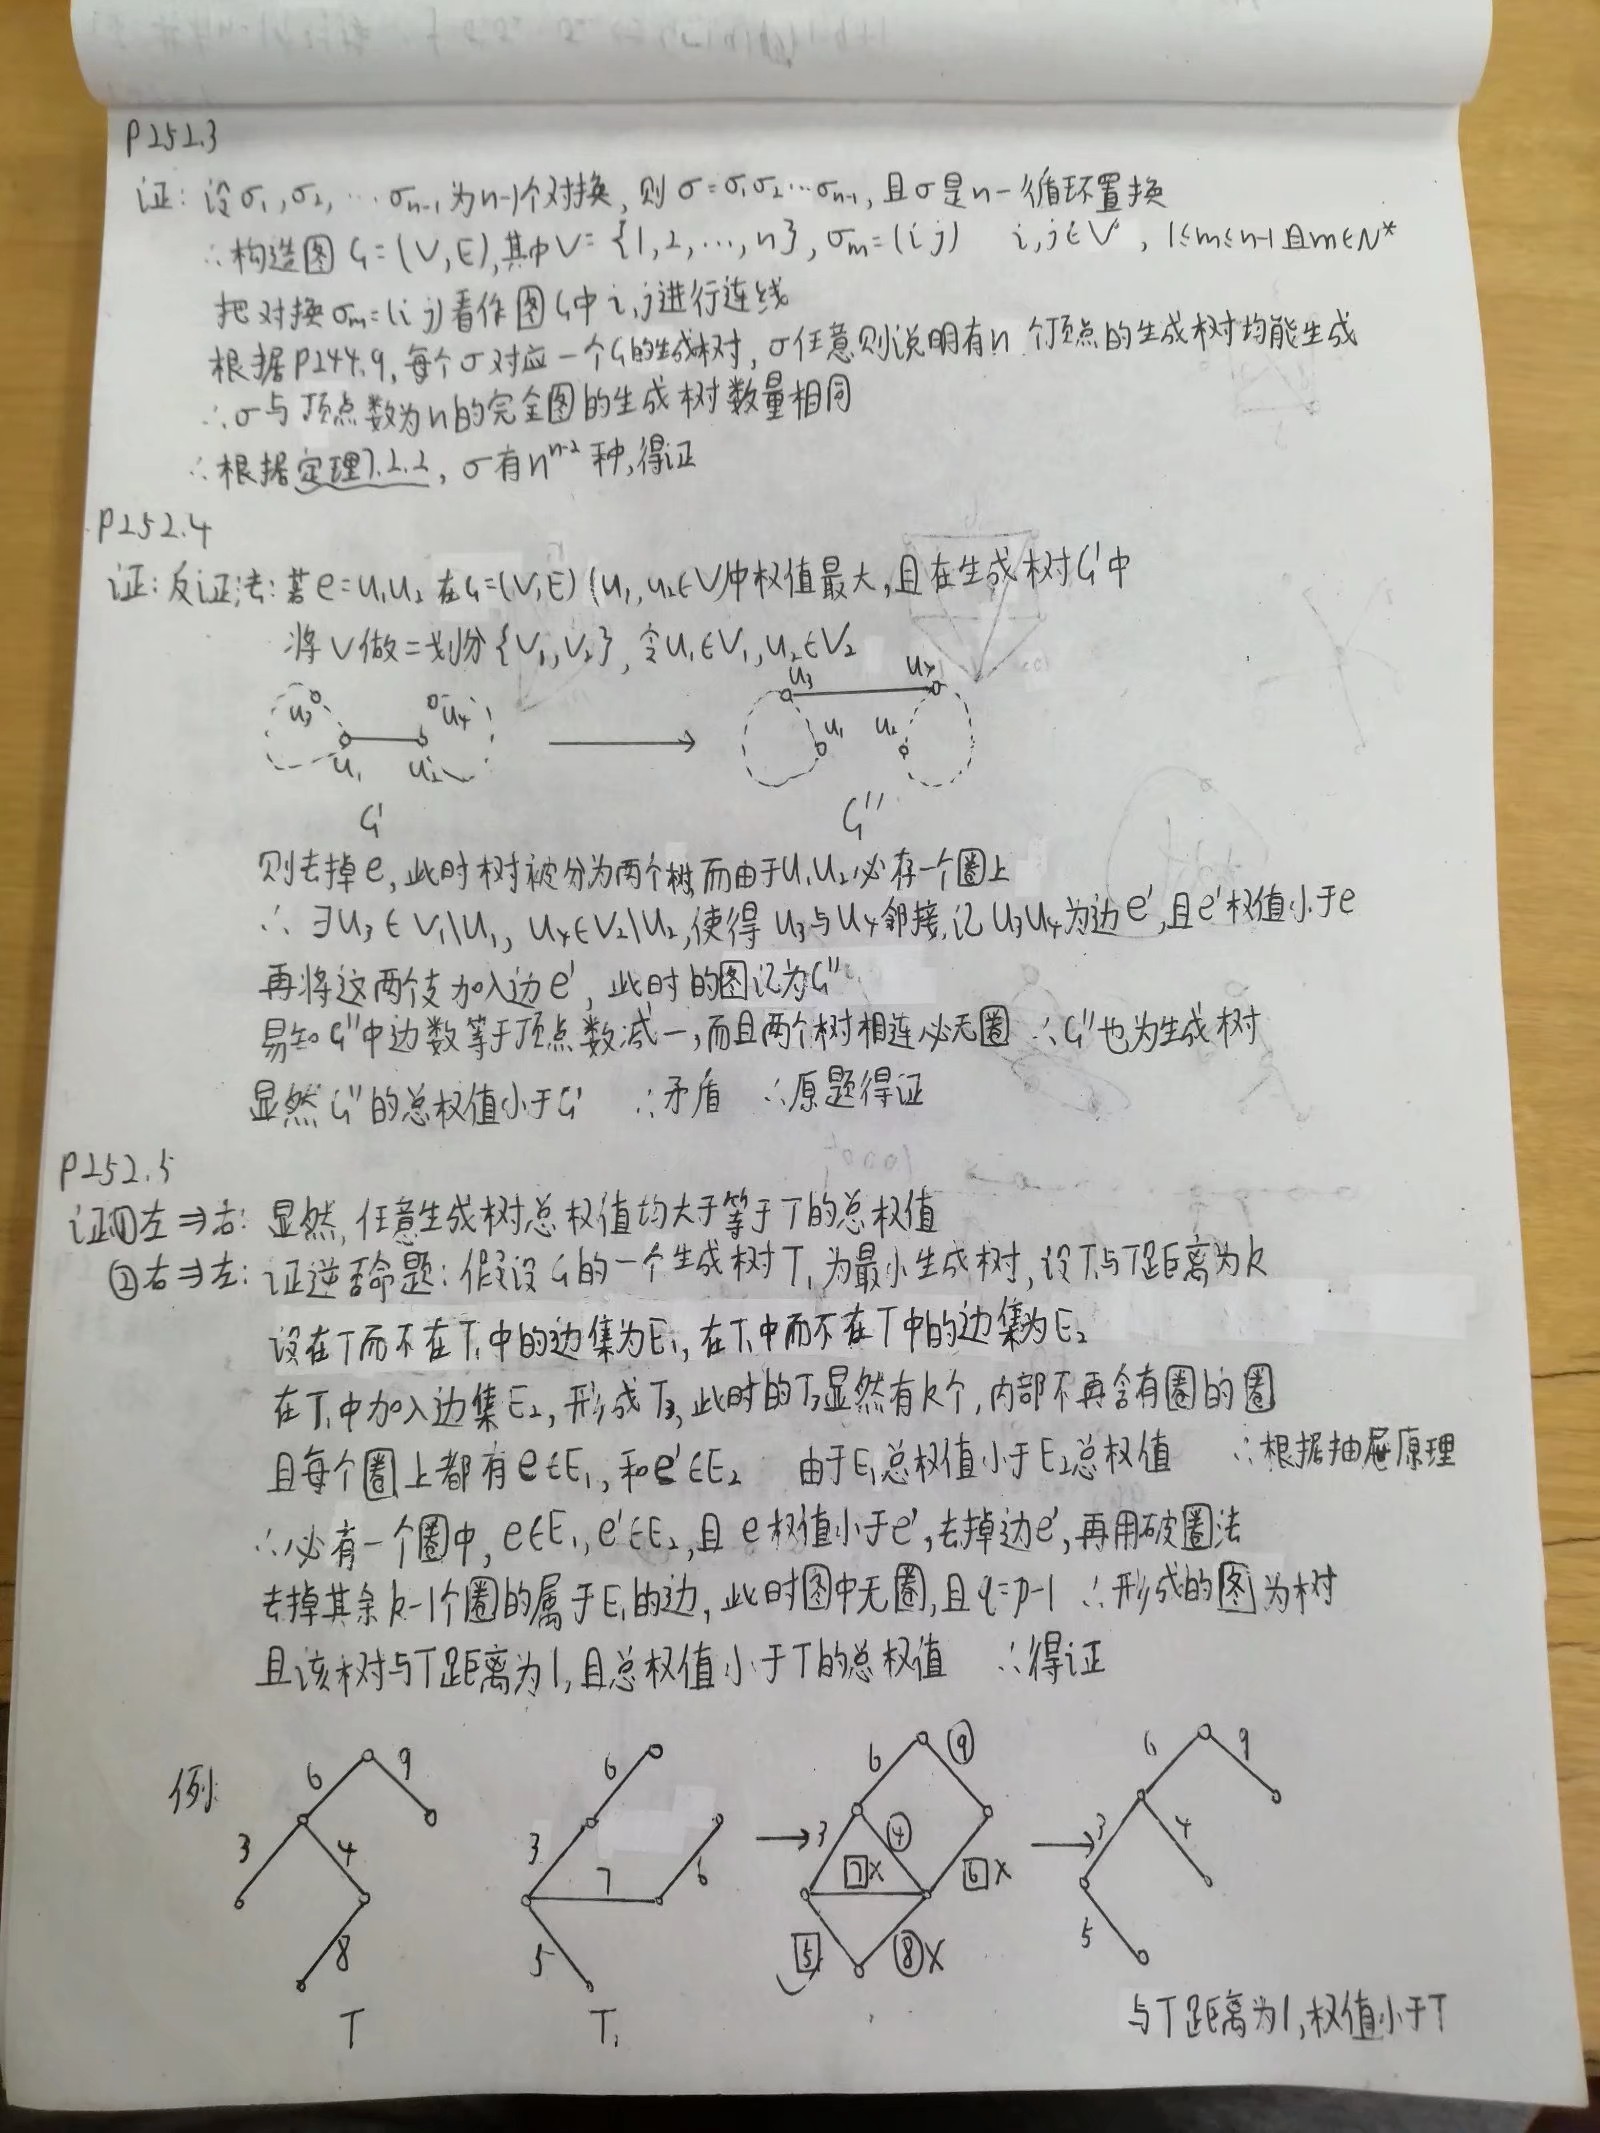 P252.3
证: 设σ₁,σ₂,…σₙ₋₁为n-1个对换, 则σ=σ₁σ₂…σₙ₋₁, 且σ是n-循环置换
∴构造图G=(V,E),其中V={1,2,…,n}, σₘ=(i j) i,j∈V, 1≤m≤n-1且m∈N*
把对换σₘ=(i j)看作图G中i,j进行连线
根据P244.9, 每个σ对应一个G的生成树, σ任意则说明有n个顶点的生成树均能生成
∴σ与顶点数为n的完全图的生成树数量相同
∴根据定理7.2.2, σ有nⁿ⁻²种,得证
P252.4
证:反证法:若e=u₁u₂在G=(V,E)(u₁,u₂∈V)中权值最大,且在生成树G'中
将V做二划分{V₁,V₂},令u₁∈V₁,u₂∈V₂
u₃ u₄ u₁ u₂ G'
u₃ u₄ u₁ u₂ G''
则去掉e,此时树被分为两个树,而由于u₁u₂必存一个圈上
∴∃u₃∈V₁\u₁, u₄∈V₂\u₂,使得u₃与u₄邻接,记u₃u₄为边e',且e'权值小于e
再将这两个支加入边e', 此时的图记为G''
易知G''中边数等于顶点数减一,而且两个树相连必无圈 ∴G''也为生成树
显然G''的总权值小于G' ∴矛盾 ∴原题得证
P252.5
证①左⇒右: 显然,任意生成树总权值均大于等于T的总权值
②右⇒左: 证逆否命题:假设G的一个生成树T₁为最小生成树,设T₁与T距离为k
设在T而不在T₁中的边集为E₁,在T₁中而不在T中的边集为E₂
在T₁中加入边集E₂,形成T₃,此时的T₃显然有k个,内部不再含有圈的圈
且每个圈上都有e∈E₁,和e'∈E₂ 由于E₁总权值小于E₂总权值 ∴根据抽屉原理
∴必有一个圈中,e∈E₁,e'∈E₂,且e权值小于e',去掉边e',再用破圈法
去掉其余k-1个圈的属于E₁的边,此时图中无圈,且q=p-1 ∴形成的图为树
且该树与T距离为1,且总权值小于T的总权值 ∴得证
例:
6 9 3 4 8 T
6 3 7 6 5 T₁
6 ⑨ 3 ④ 7× 6× 5 ⑧×
6 9 3 4 5
与T距离为1,权值小于T